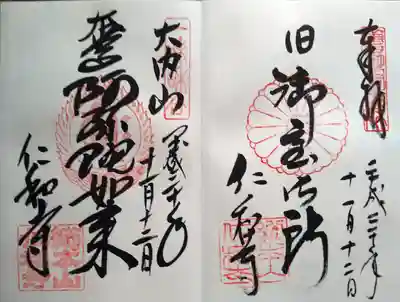 奉拝
平成二十年
十一月十二日
旧御室御所
仁和寺
大内山
平成二十年
十一月十二日
阿弥陀如来
仁和寺